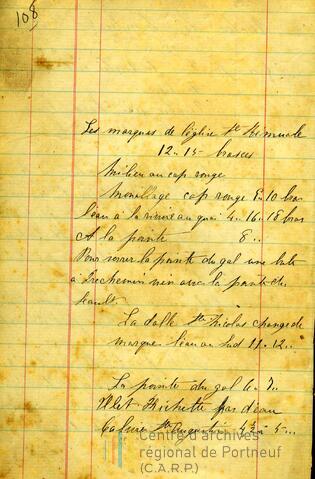 108
Les marques de léglise Ste Romuale
12 .. 15 - brasces
Milieu au cap rouge
Mouillage cap rouge 8 .. 10 bras
leau à la au quai 4 .. 16 - 18 bras
A la pointe 8 ..
Pour la pointe du gal une
à avec la pointe du
sault
La dalle St Nicolas change de
marque leau au sud 11 .. 12 ..
La pointe du gal 6 .. 7 ..
Ilet Richette pas d'eau
St Augustin 4½ - 5 ...
Centre d'archives
régional de Portneuf
(C.A.R.P.)